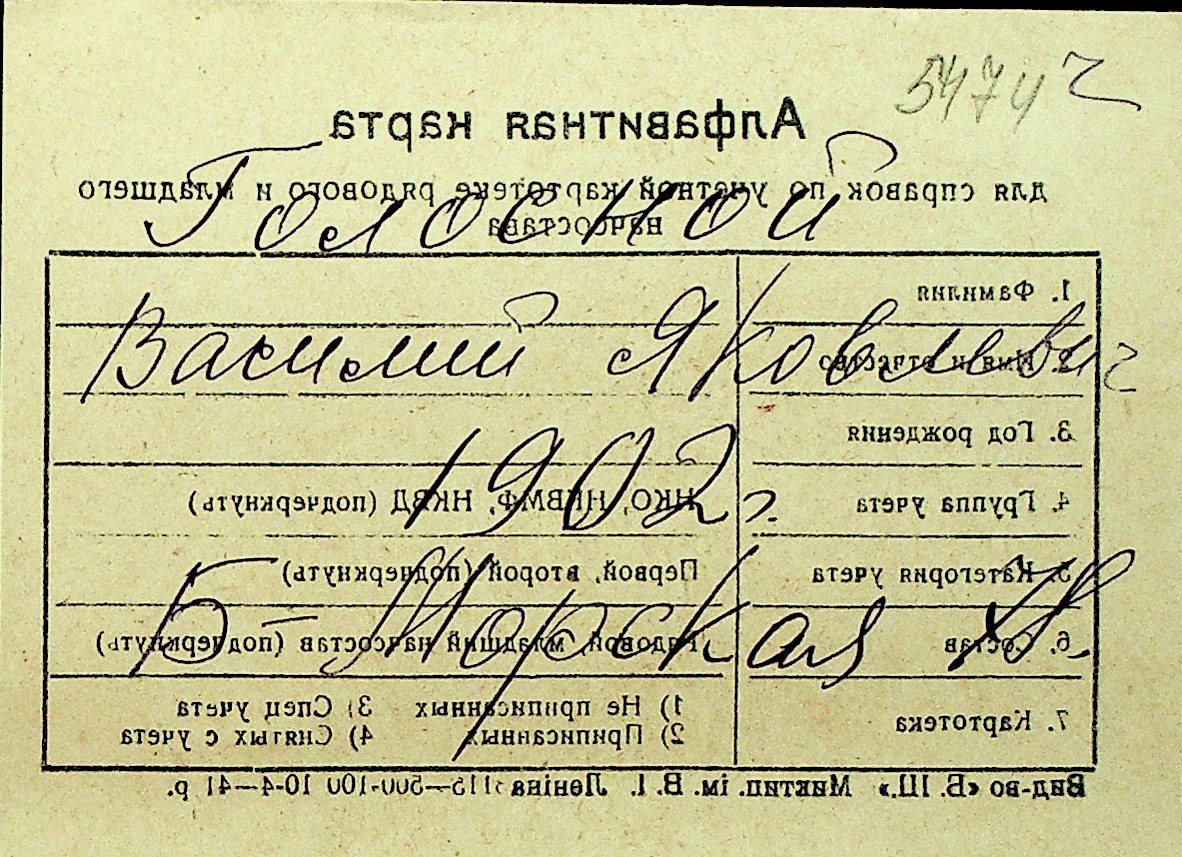 5474
Алфавитная карта
для справок по учетной картотеке рядового и младшего
начсостава
Голосной
1. Фамилия
Василий Яковлевич
2. Имя и отчество
3. Год рождения
1902 г.
4. Группа учета
НКО, НКВМФ, НКВД (подчеркнуть)
5. Категория учета
Первой, второй (подчеркнуть)
Б-Морская
6. Состав
Рядовой, младший начсостав (подчеркнуть)
7. Картотека
1) Не приписанных 3) Спец учета
2) Приписанных 4) Снятых с учета
Вид-во «Б. Ш.» Миктип. ім. В. І. Леніна 10-4-41 р.